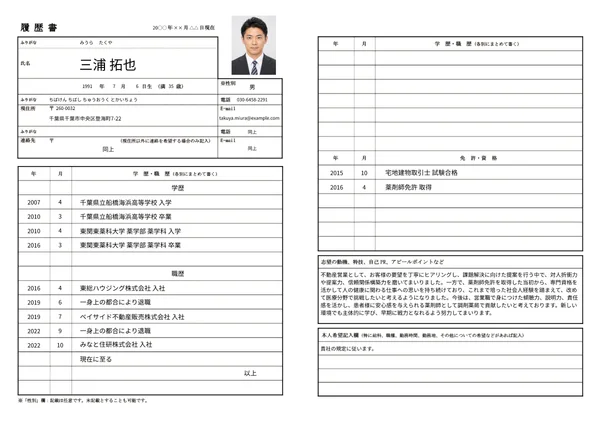 履 歴 書
20○○ 年 ×× 月 △△ 日現在
ふりがな みうら たくや
氏名 三浦 拓也
1991 年 7 月 6 日生 (満 35 歳)
※性別 男
ふりがな ちばけん ちばし ちゅうおうく とかいちょう
電話 030-6458-2291
現住所 〒 260-0032
千葉県千葉市中央区登海町7-22
E-mail
takuya.miura@example.com
ふりがな
電話 同上
連絡先 〒 (現住所以外に連絡を希望する場合のみ記入)
同上
E-mail
同上
年 月 学 歴・職 歴 (各別にまとめて書く)
学歴
2007 4 千葉県立船橋海浜高等学校 入学
2010 3 千葉県立船橋海浜高等学校 卒業
2010 4 東関東薬科大学 薬学部 薬学科 入学
2016 3 東関東薬科大学 薬学部 薬学科 卒業
職歴
2016 4 東総ハウジング株式会社 入社
2019 6 一身上の都合により退職
2019 7 ベイサイド不動産販売株式会社 入社
2022 9 一身上の都合により退職
2022 10 みなと住研株式会社 入社
現在に至る
以上
※「性別」欄：記載は任意です。未記載とすることも可能です。
年 月 学 歴・職 歴 (各別にまとめて書く)
年 月 免 許・資 格
2015 10 宅地建物取引士 試験合格
2016 4 薬剤師免許 取得
志望の動機、特技、自己PR、アピールポイントなど
不動産営業として、お客様の要望を丁寧にヒアリングし、課題解決に向けた提案を行う中で、対人折衝力
や提案力、信頼関係構築力を磨いてまいりました。一方で、薬剤師免許を取得した当初から、専門資格を
活かして人の健康に関わる仕事への思いを持ち続けており、これまで培った社会人経験を踏まえて、改め
て医療分野で挑戦したいと考えるようになりました。今後は、営業職で身につけた傾聴力、説明力、責任
感を活かし、患者様に安心感を与えられる薬剤師として調剤薬局で貢献したいと考えております。新しい
環境でも主体的に学び、早期に戦力となれるよう努力してまいります。
本人希望記入欄 (特に給料、職種、勤務時間、勤務地、その他についての希望などがあれば記入)
貴社の規定に従います。